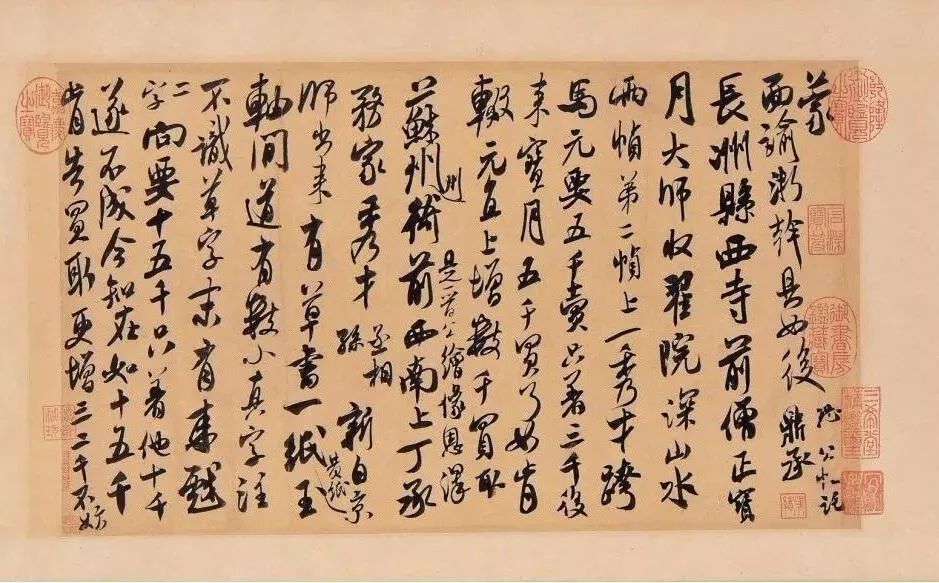 蒙
面諭浙幹具如後
長洲縣西寺前僧正寶
月大師收翟院深山水
兩幀第二幀上一秀才跨
馬元要五千賣只著三千後
來寶月五千買了如肯
輟元直上增數千買取
是晉公繪像恩澤
蘇州衙前西南上丁承
務家秀才丞相孫新自京
師出來有草書一紙黃紙玉
軸間道有數小真字注
不識草字末有來戲
二字向要十五千只著他十千
遂不成今知在如十五千
肯告買取更增三二千不妨
御書房鑑藏寶
三希堂精鑑璽